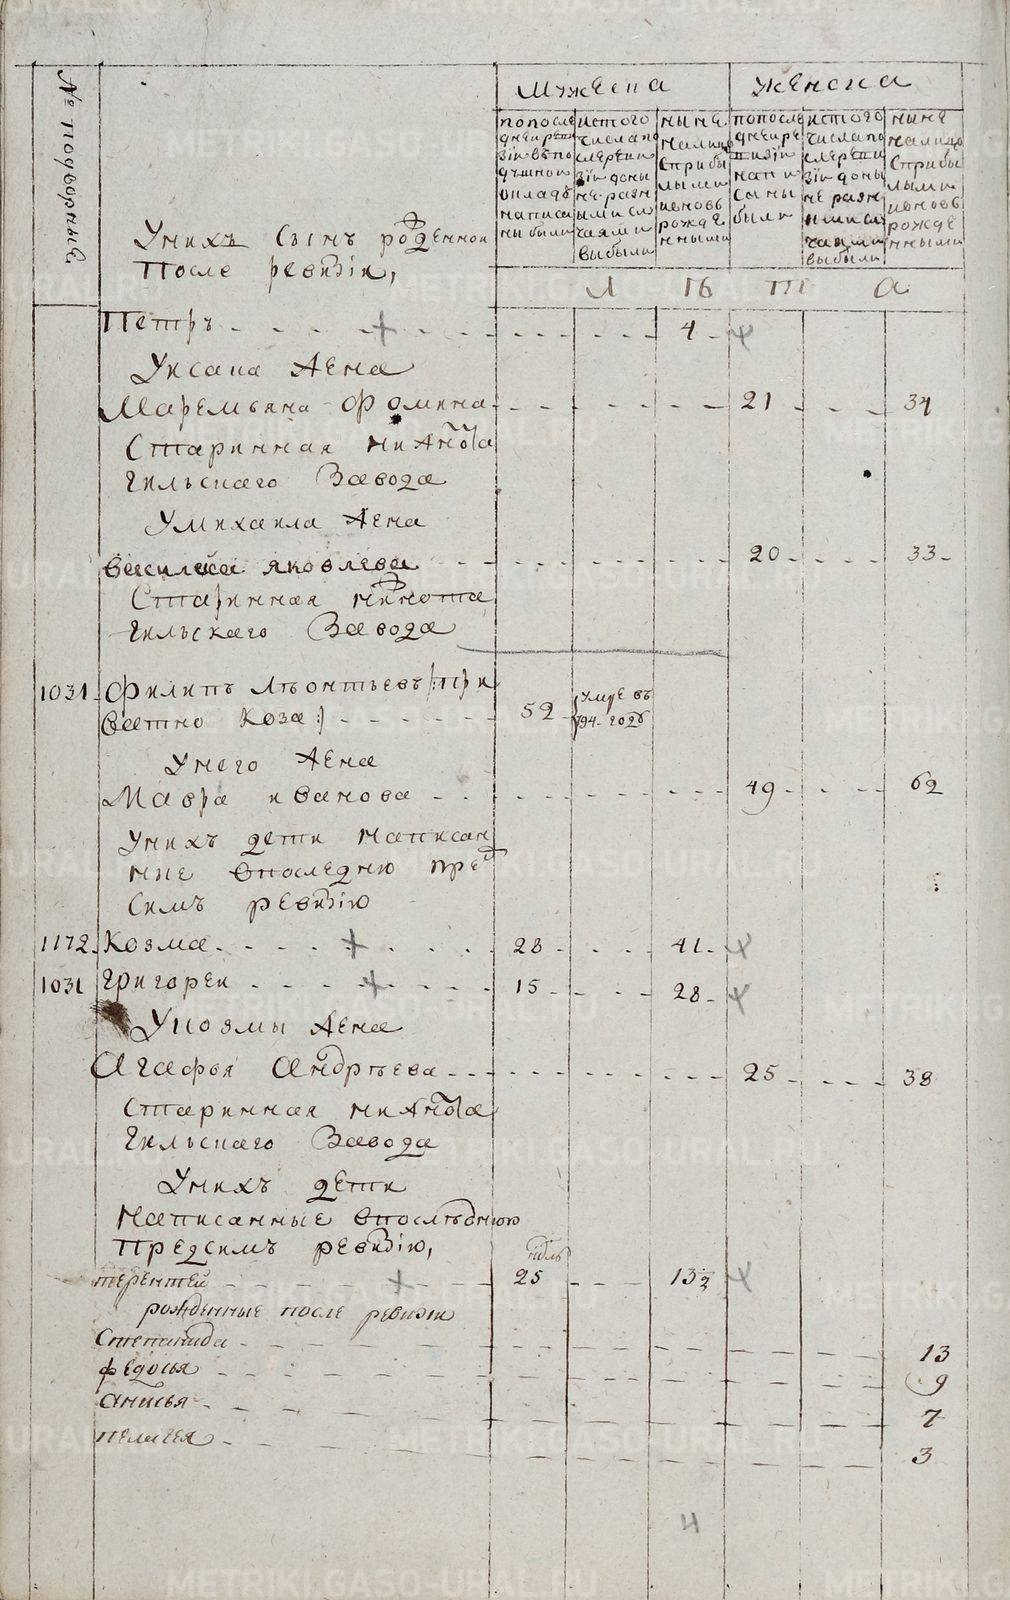 № подворные
Мужеска
Женска
попосле
дней реви
зiи въ по
душной
окладъ
написа
ны были
истого
числа по
слеревизiи
зiи доны
не разн
ыми сл
чаями
выбыли
ныне
налицо
с прибы
лыми
и вновь
рожде
нными
попосле
дней ре
визiи
напи
саны
были
истого
числа по
слереви
зiи доны
не разн
ыми сл
чаями
выбыли
ныне
налицо
с прибы
лыми
и вновь
рожде
нными
У нихъ сынъ рожденной
после ревизiи,
Л Ѣ т а
Петръ 4
Уисака жена
Маремьяна Фомина 21 34
Старинная нижнота
гильскаго Завода
Умихаила жена
Василиса яковлева 20 33
Старинная нижнота
гильскаго Завода
1031 Филипъ Леонтьевъ /:при
ватно Коза:/ 52 умре въ
794 годѣ
У него жена
Мавра иванова 49 62
У нихъ дети написан
ные впоследню пред
симъ ревизiю
1172 Козма 28 41
1031 Григорей 15 28
У козмы жена
Агафья Андрѣева 25 38
Старинная нижнота
гильскаго Завода
У нихъ дети
Написанные впослѣднюю
предсимъ ревизiю,
терентей 25 13½
рожденные после ревизiи
Степанида 13
федосья 9
анисья 7
пелагея 3
4
METRIKI.GASO-URAL.RU